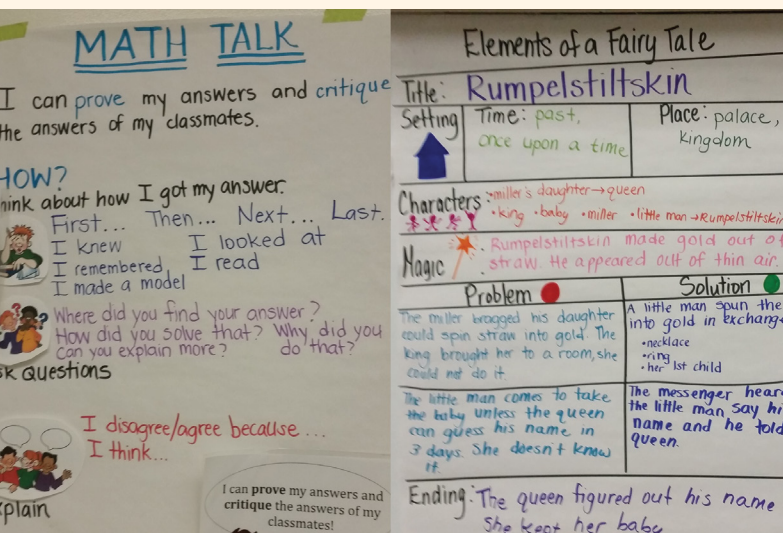 MATH TALK
I can prove my answers and critique
the answers of my classmates.
HOW?
hink about how I got my answer.
First... Then... Next... Last.
I knew I looked at
I remembered I read
I made a model
Where did you find your answer?
How did you solve that? Why did you
Can you explain more? do that?
sk Questions
I disagree/agree because...
I think...
xplain
I can prove my answers and
critique the answers of my
classmates!
Elements of a Fairy Tale
Title: Rumpelstiltskin
Setting
Time: past,
once upon a time
Place: palace,
kingdom
Characters
•miller's daughter→queen
•king •baby •miller •little man→Rumpelstiltskin
Magic
Rumpelstiltskin made gold out of
straw. He appeared out of thin air.
Problem
Solution
The miller bragged his daughter
could spin straw into gold. The
king brought her to a room, she
could not do it.
A little man spun the
into gold in exchang
•necklace
•ring
•her 1st child
The little man comes to take
the baby unless the queen
can guess his name in
3 days. She doesn't know
it.
The messenger hear
the little man say hi
name and he told
queen.
Ending: The queen figured out his name
She kept her baby